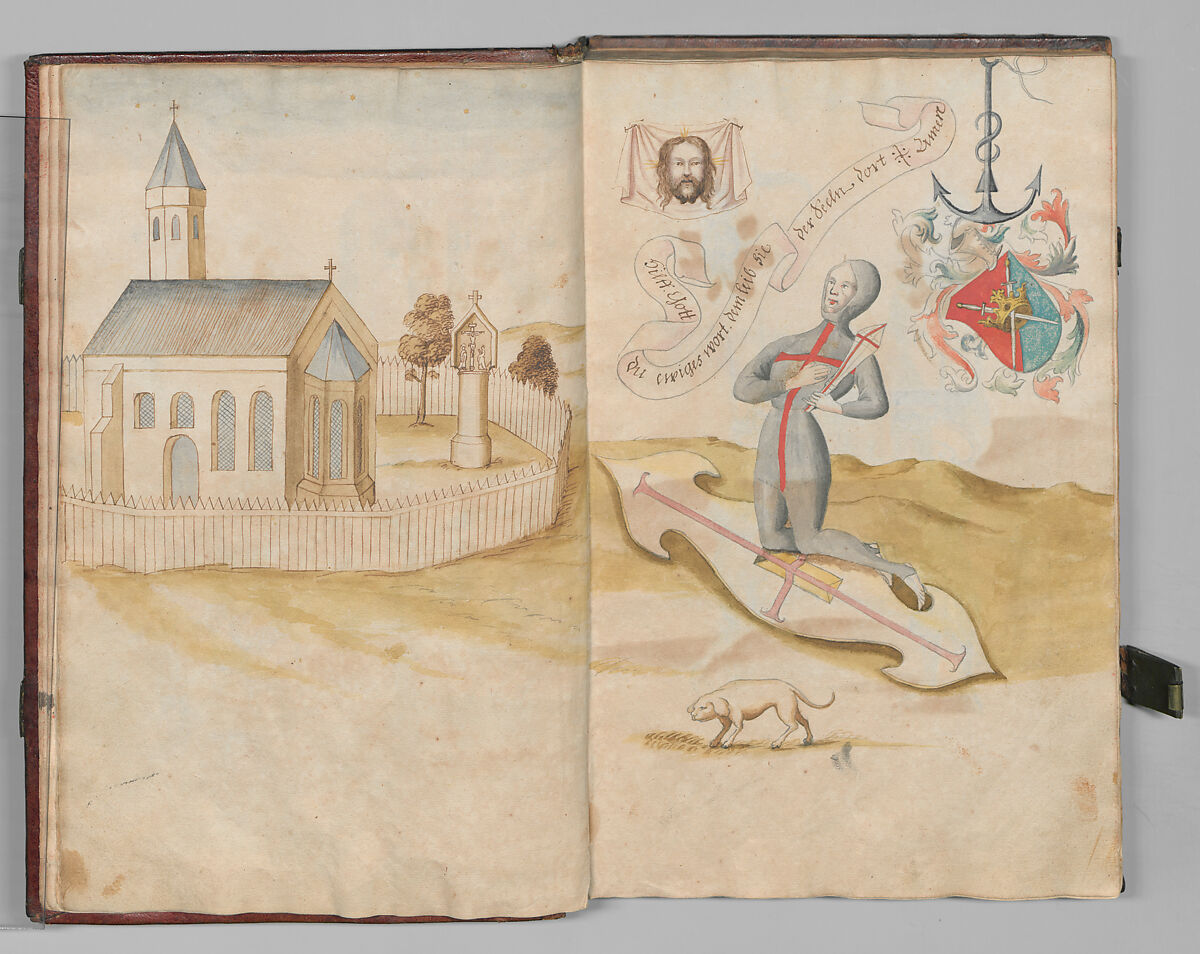 hilft Gott
du ewiges wort dem leib hie
der Seeln dort Amen